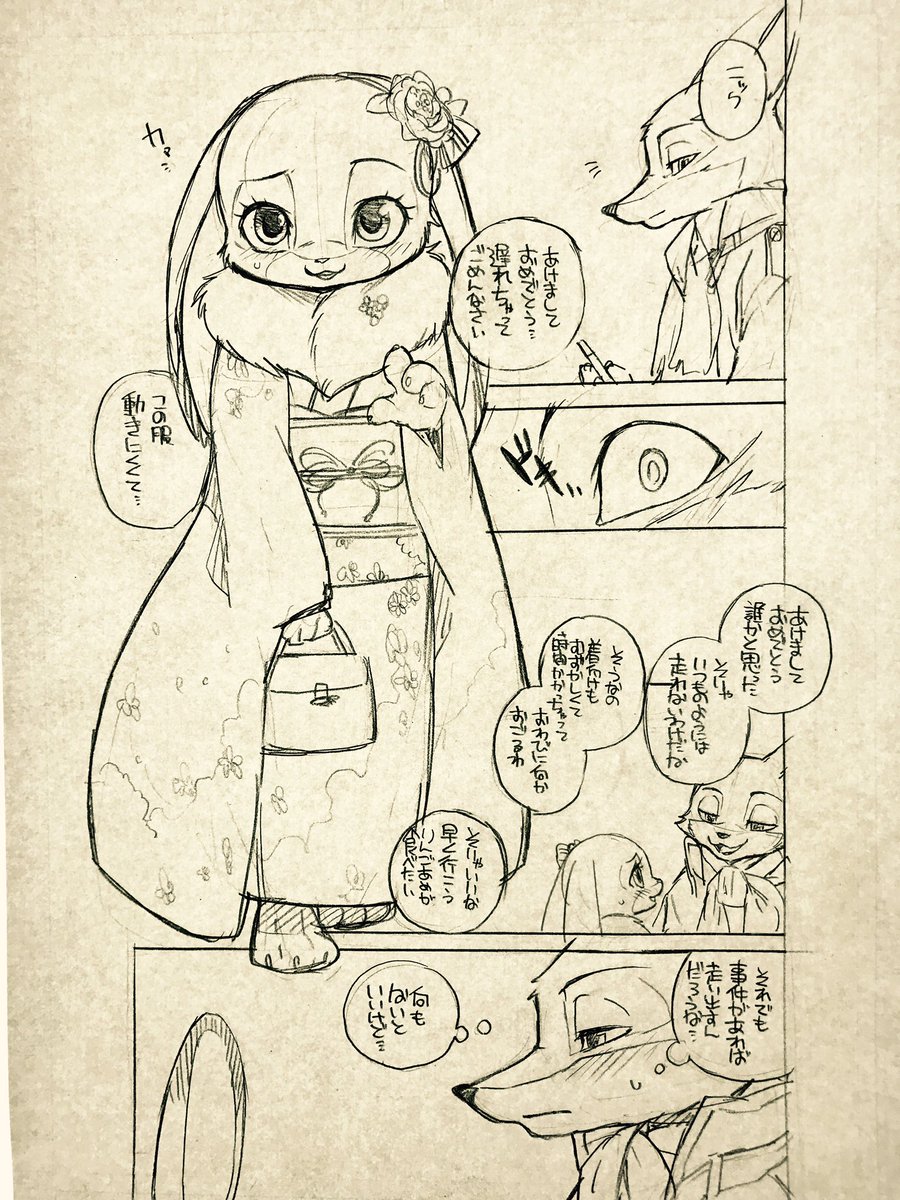 ニック
あけまして
おめでとう…
遅れちゃって
ごめんなさい
カァ…
この服
動きにくくて…
ドキ…
あけまして
おめでとう
誰かと思った
そりゃ
いつものようには
走れないわけだな
そうなの
着付けも
むずかしくて
時間かかっちゃって
おわびに何か
おごるわ
そりゃいいな
早く行こう
りんごあめが
食べたい
それでも
事件があれば
走り出すん
だろうな…
何も
ないと
いいけど…